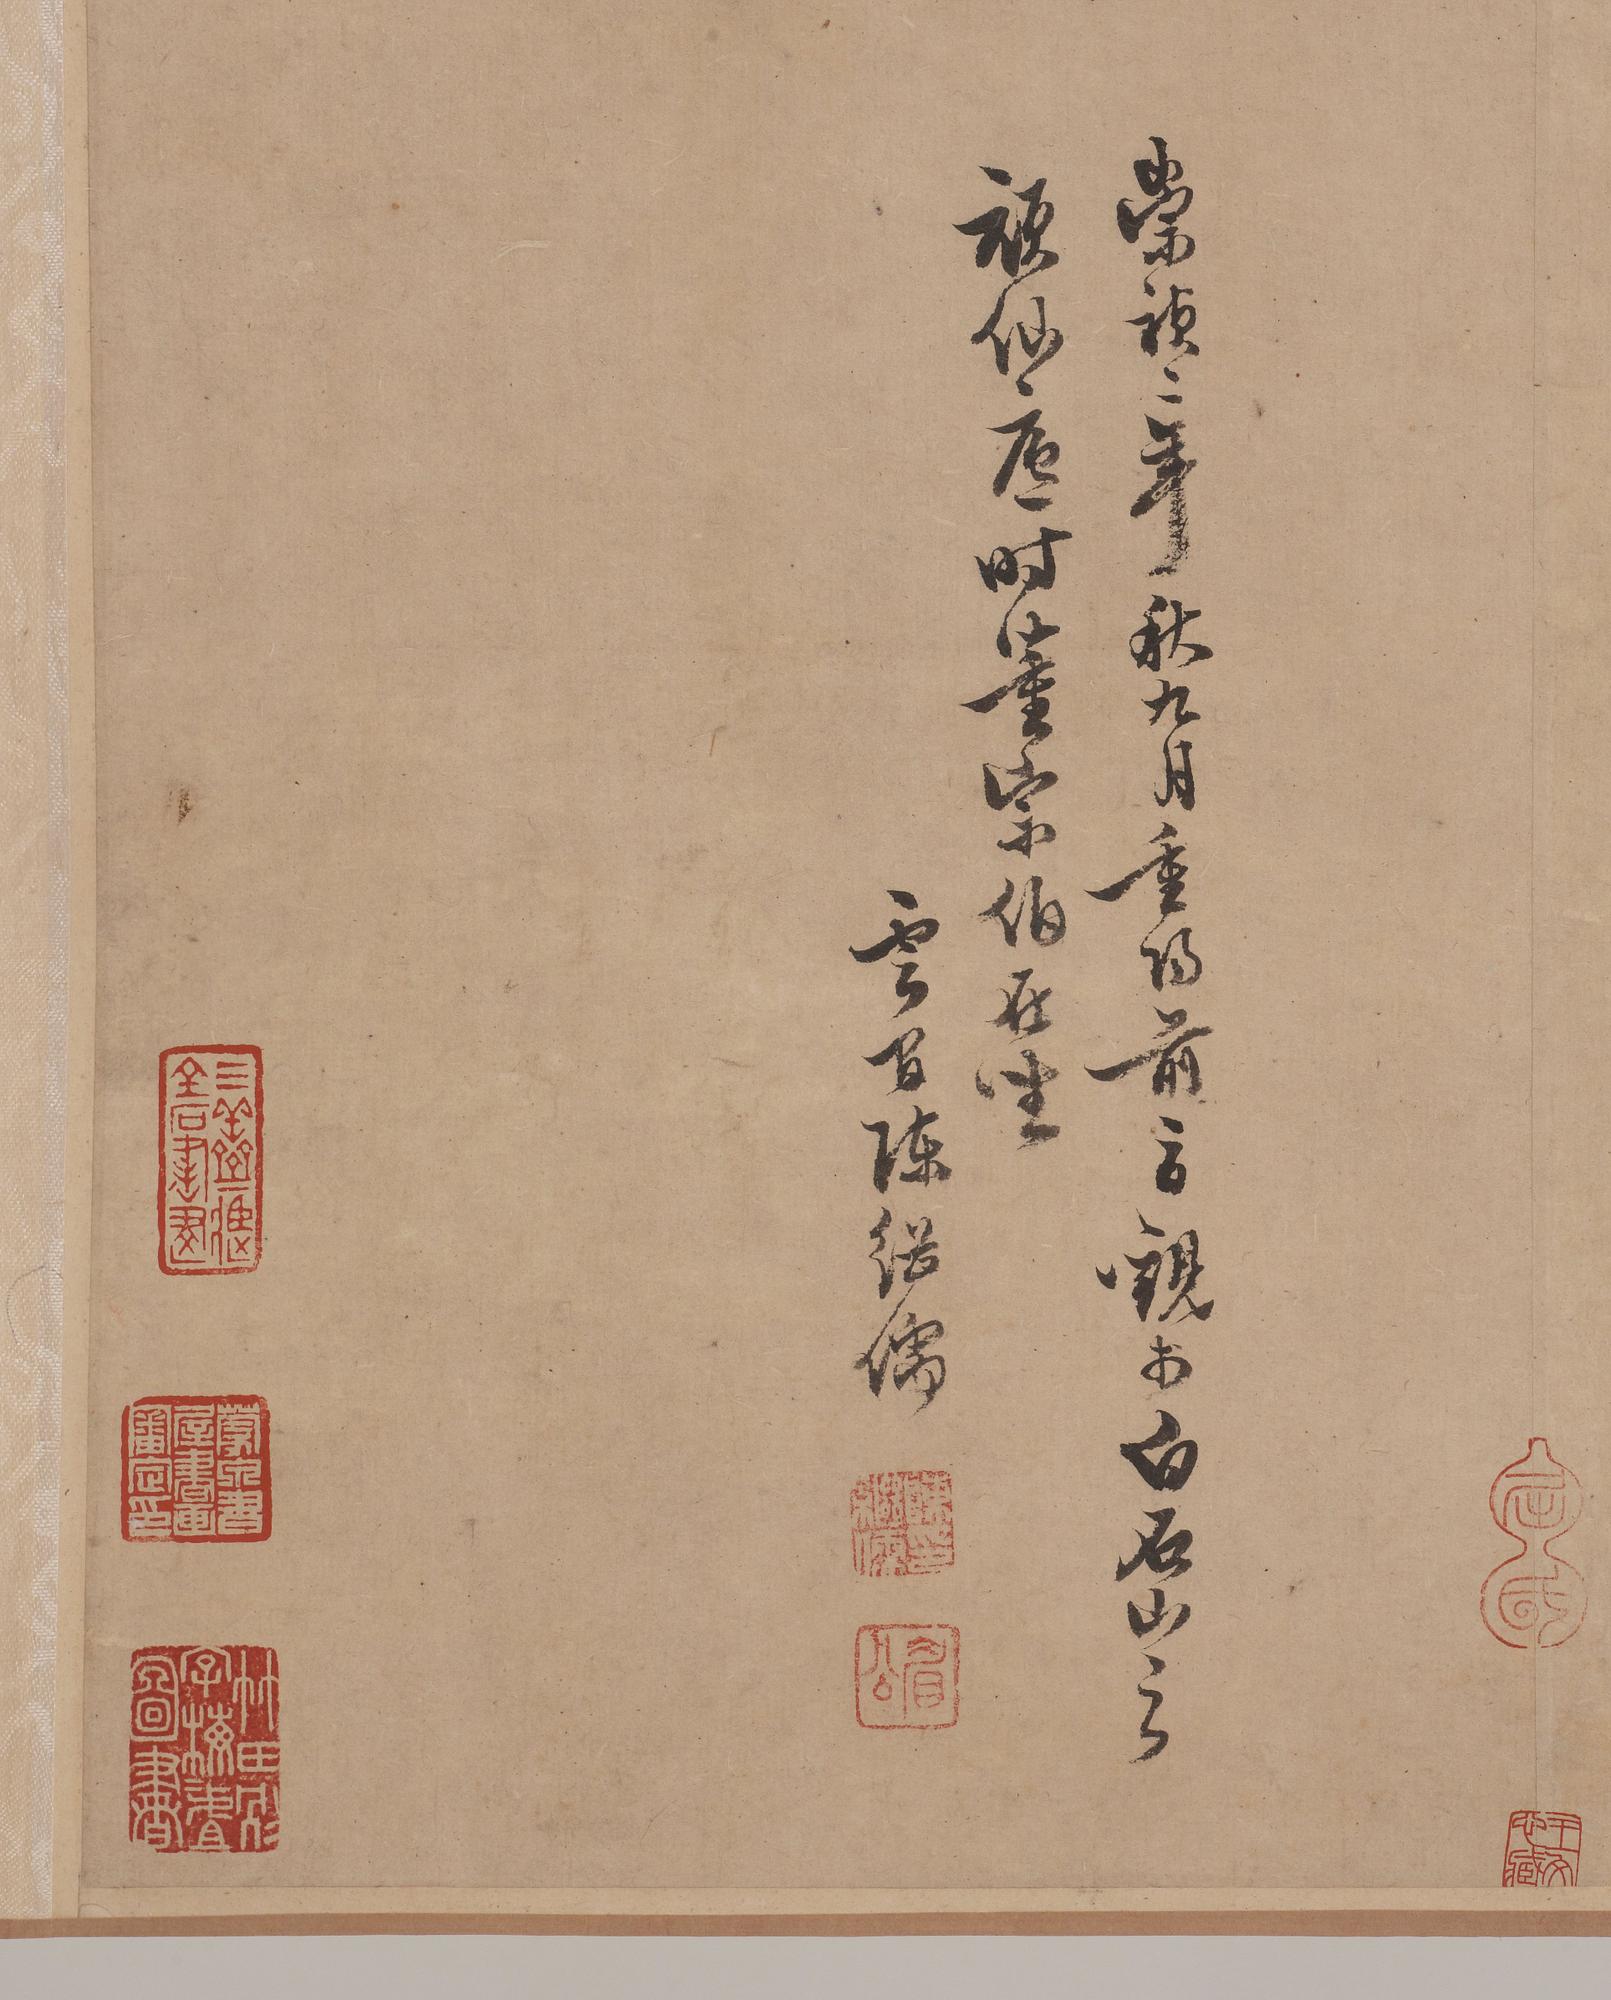 崇禎二年秋九月重陽前一日觀於白石山之
頑仙廬時董宗伯在坐
雲間陳繼儒
陳印繼儒
眉公